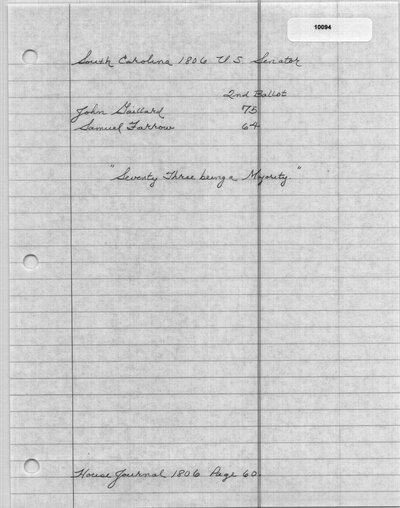 10094
South Carolina 1806 U.S. Senator
2nd Ballot
John Gaillard 75
Samuel Farrow 64
"Seventy Three being a Majority."
House Journal 1806 Page 60.